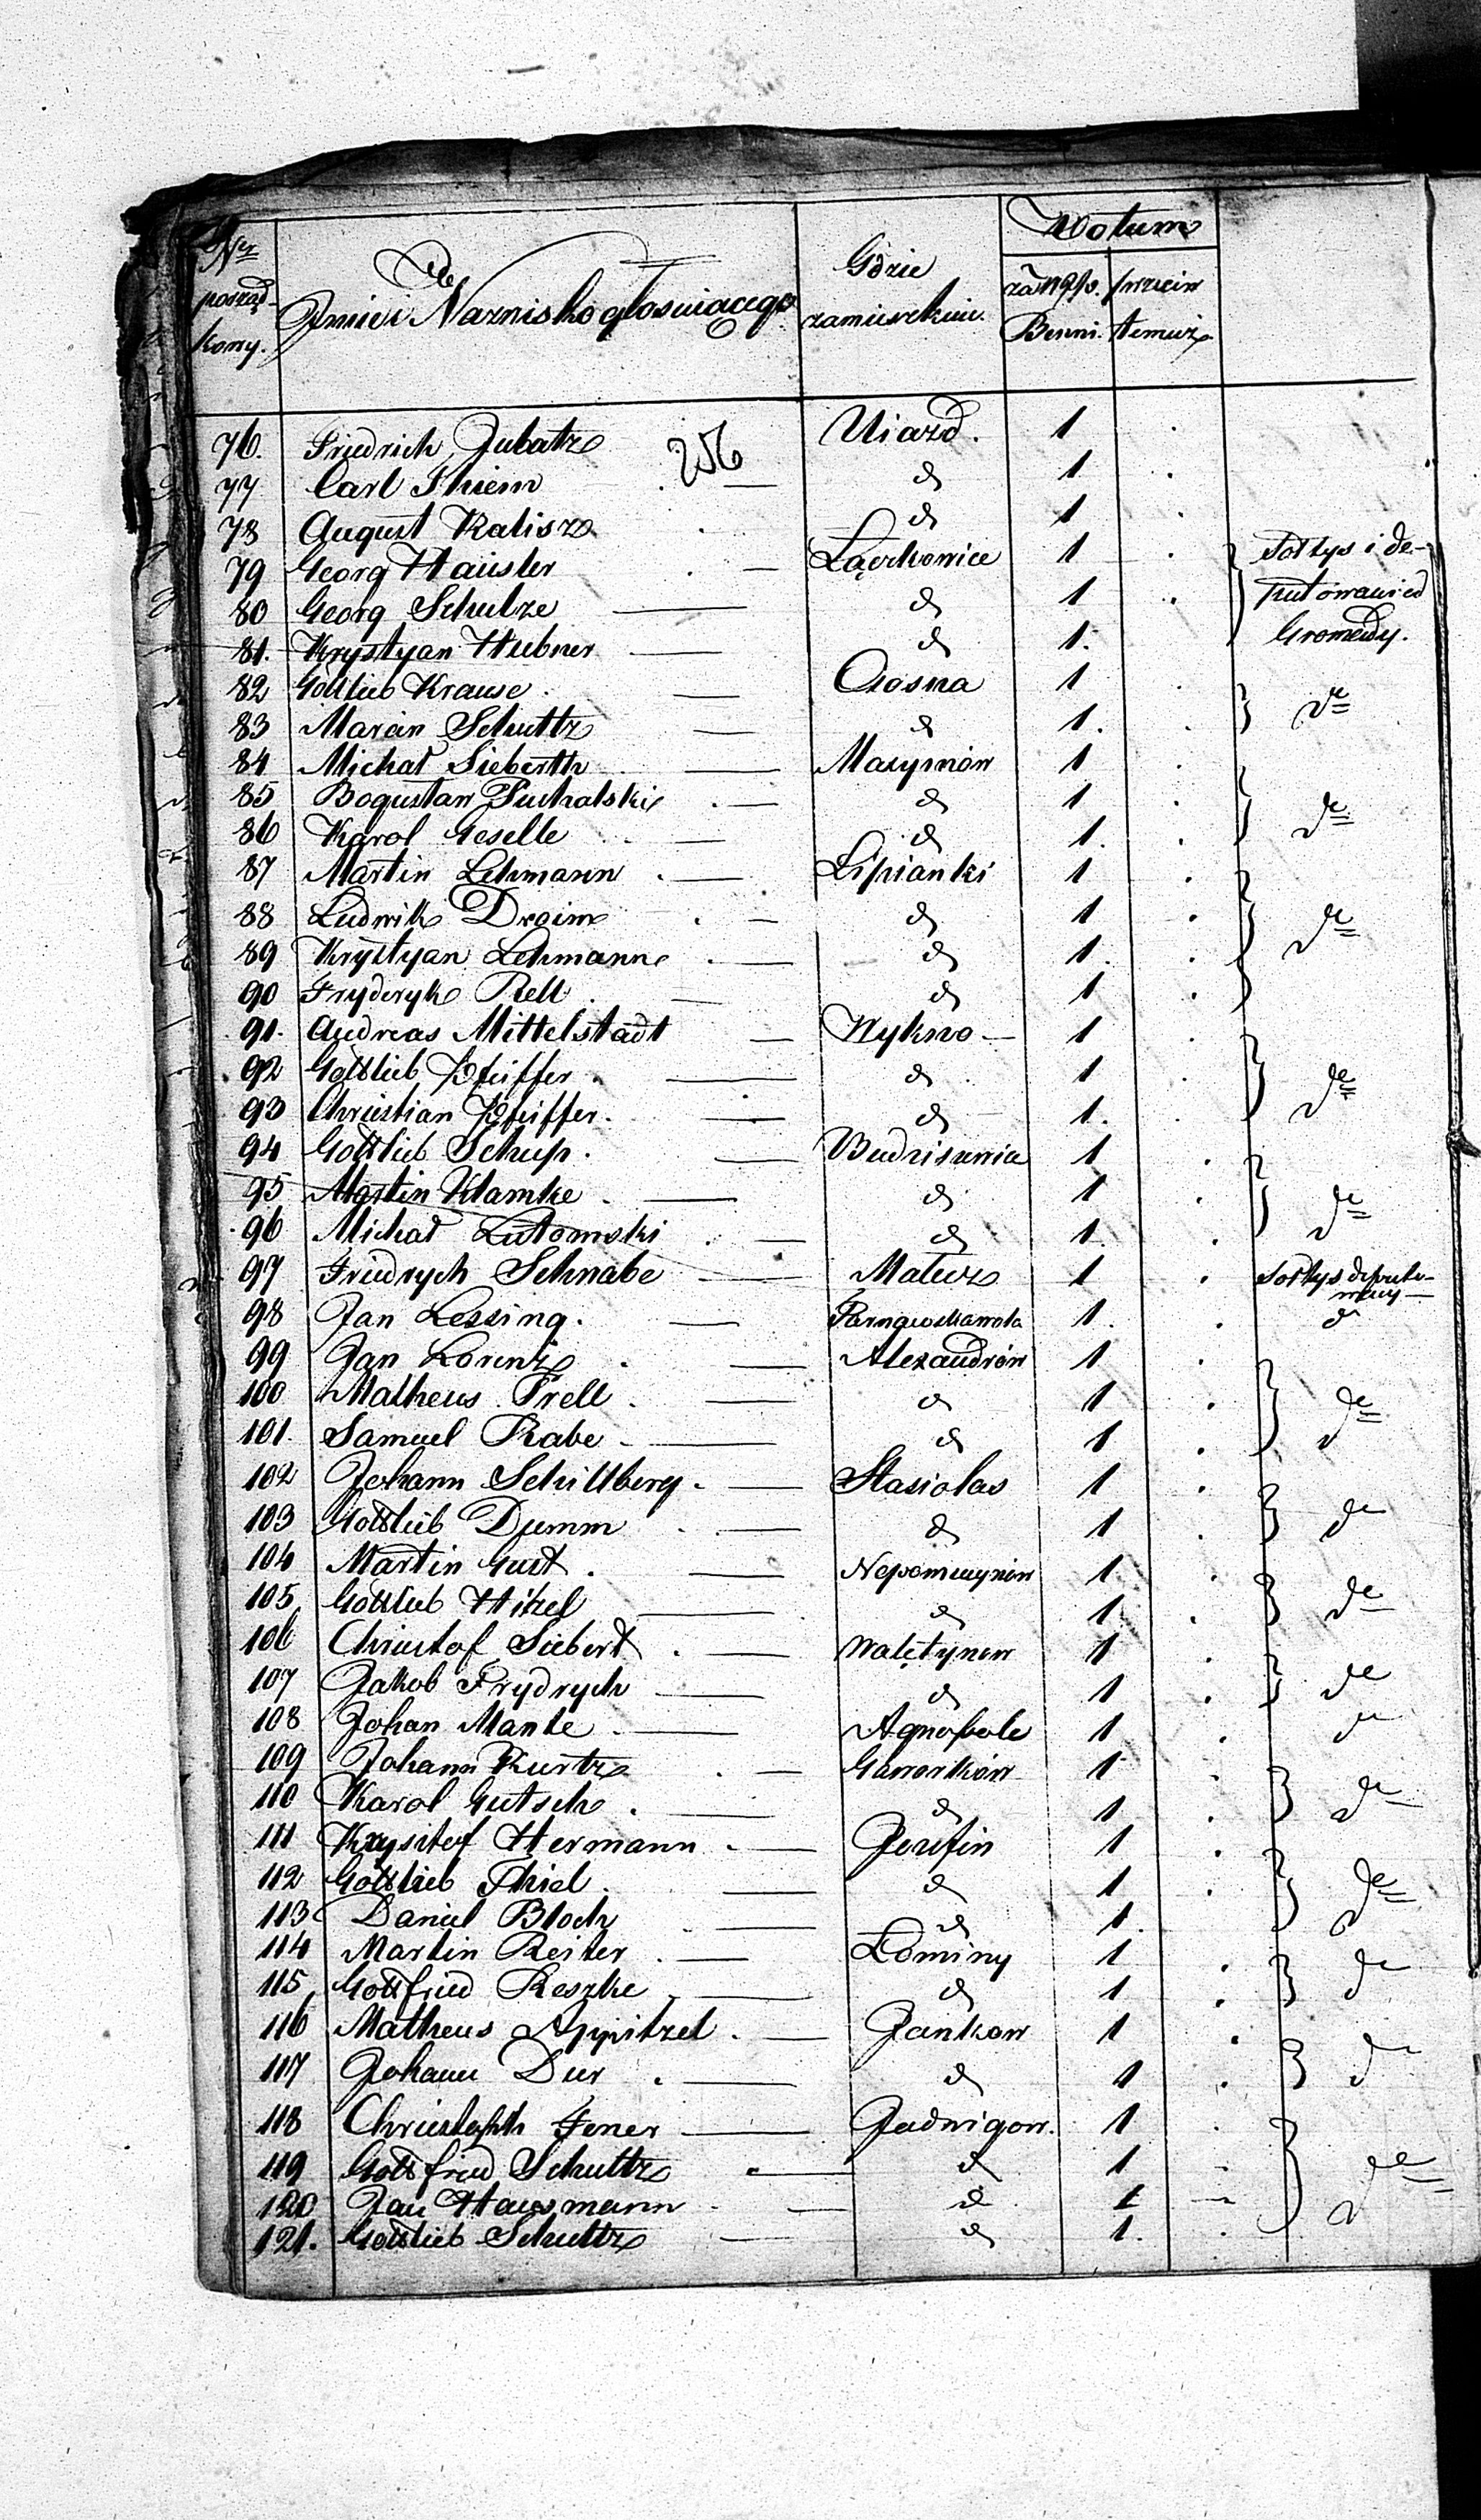 Nr porząd- kowy. Imie i Nazwisko głosuiącego Gdzie zamieszkuie Votum
za Wgo. Benni. przeciw temuż
76. Friedrich Jubatz Uiazd. 1 .
256
77 Carl Thiem — d 1 .
78 August Kalisz d 1 .
79 Georg Haüsler — Łączkowice 1 . Sołtys i de-
80 Georg Schulze — d 1 . putowani od
81. Krystyan Hubner — d 1. Gromady.
82 Gottlieb Krause — Ciosna 1 .
83 Marcin Schultz — d 1. . de
84 Michał Sieberth — Maxymów 1 .
85 Bogusław Puchalski — d 1 . de
86 Karol Geselle — d 1. .
87 Martin Lehmann — Lipianki 1 .
88 Ludwik Dreim — d 1 . de
89 Krystyan Lehmann — d 1. .
90 Fryderyk Rell — d 1 .
91. Andreas Mittelstädt — Wykno — 1 .
92 Gottlieb Pfeiffer — d 1 . de
93 Christian Pfeiffer. — d 1. .
94 Gottlieb Schup. — Budziszewice 1 .
95 Martin Klamke — d 1 . de
96 Michał Lutomski — d 1. .
97 Friedrych Schnabe — Mateusz 1 . Sołtys deputo-
wany —
98 Jan Lessing. — 1. . d
99 Jan Lorentz — Alexandrów 1 .
100 Matheus Prell — d 1 . de
101. Samuel Rabe — d 1 .
102 Johann Schillberg. — Stasiolas 1 .
103 Gottlieb Dumm — d 1 . de
104 Martin Gust. — Nepomucynów 1 .
105. Gottlieb Hitzel — d 1. . de
106 Christof Siebert — Walętynow 1 .
107 Jakob Frydrych — d 1 . de
108 Johan Manke — Agnopole 1 . de
109 Johann Kurtz — Gaworków 1 .
110 Karol Gutsch — d 1. . de
111 Krysztof Hermann — Józefin 1 .
112 Gottlieb Thiel — d 1 . de
113 Daniel Bloch — d 1.
114 Martin Reiter — Łominy 1 .
115 Gottfried Reszke — d 1 . de
116 Matheus Appitzel — Jankow 1 .
117 Johann Dur — d 1 . de
118 Christoph Fener — Jadwigow. 1 .
119 Gottfried Schultz — d 1 . de
120 Jan Hausmann — d 1 —
121. Gottlieb Schultz — d 1. .